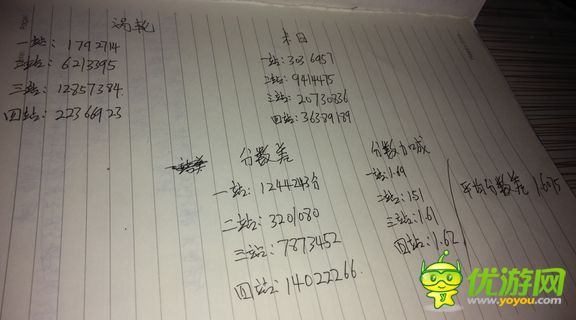 涡轮
一站：1792714
二站：6213395
三站：12857384
四站：22366923
末日
一站：3036957
二站：9414475
三站：20730836
四站：36389189
分数差
一站：1244243分
二站：3201080
三站：7873452
四站：14022266.
分数加成
一站：1.69
二站：1.51
三站：1.61
四站：1.62
平均分数差 1.6075
优游网
www.yoyou.com